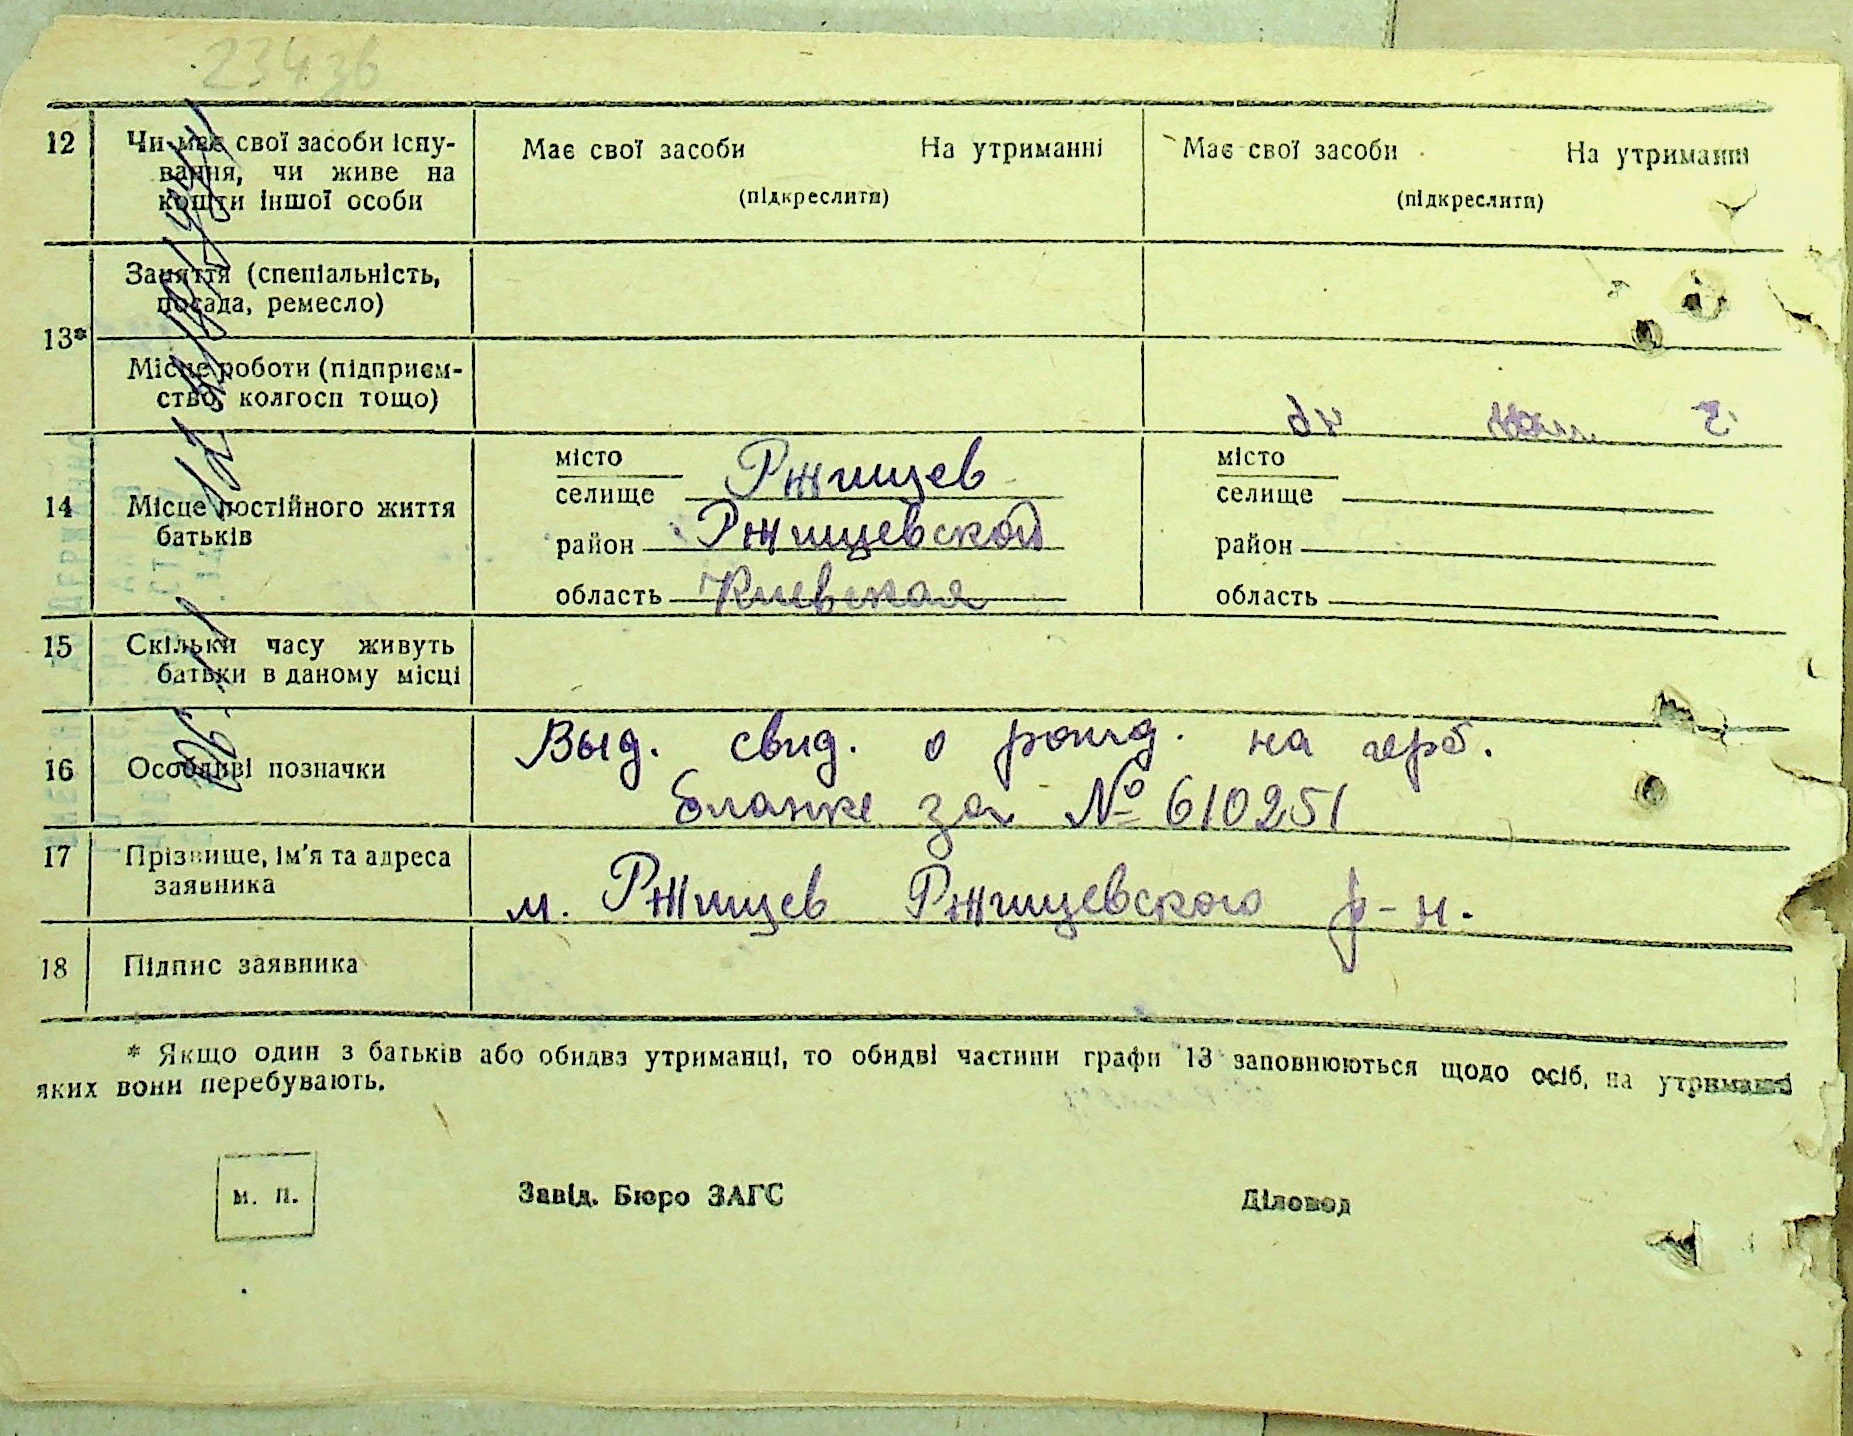 23436
12
Чи має свої засоби існу-
вання, чи живе на
кошти іншої особи
Має свої засоби На утриманні
(підкреслити)
Має свої засоби На утриманні
(підкреслити)
13*
Заняття (спеціальність,
посада, ремесло)
Місце роботи (підприєм-
ство, колгосп тощо)
14
Місце постійного життя
батьків
місто
селище Ржищев
район Ржищевской
область Киевская
місто
селище
район
область
15
Скільки часу живуть
батьки в даному місці
16
Особливі позначки
Выд. свид. о рожд. на герб.
бланке за № 610251
17
Прізвище, ім'я та адреса
заявника
м. Ржищев Ржищевского р-н.
18
Підпис заявника
* Якщо один з батьків або обидва утриманці, то обидві частини графи 13 заповнюються щодо осіб, на утриманні
яких вони перебувають.
м. п.
Завід. Бюро ЗАГС
Діловод